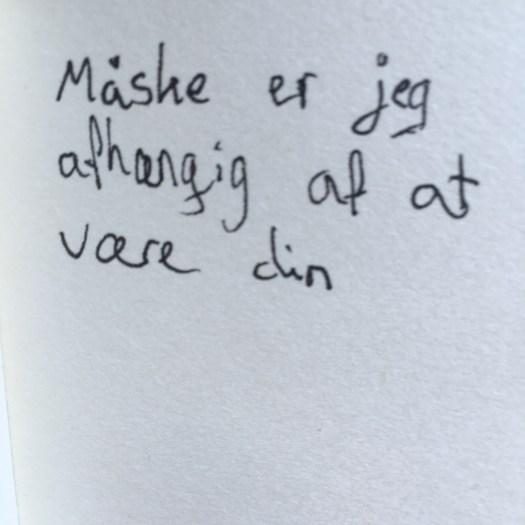 Måske er jeg
afhængig af at
være din